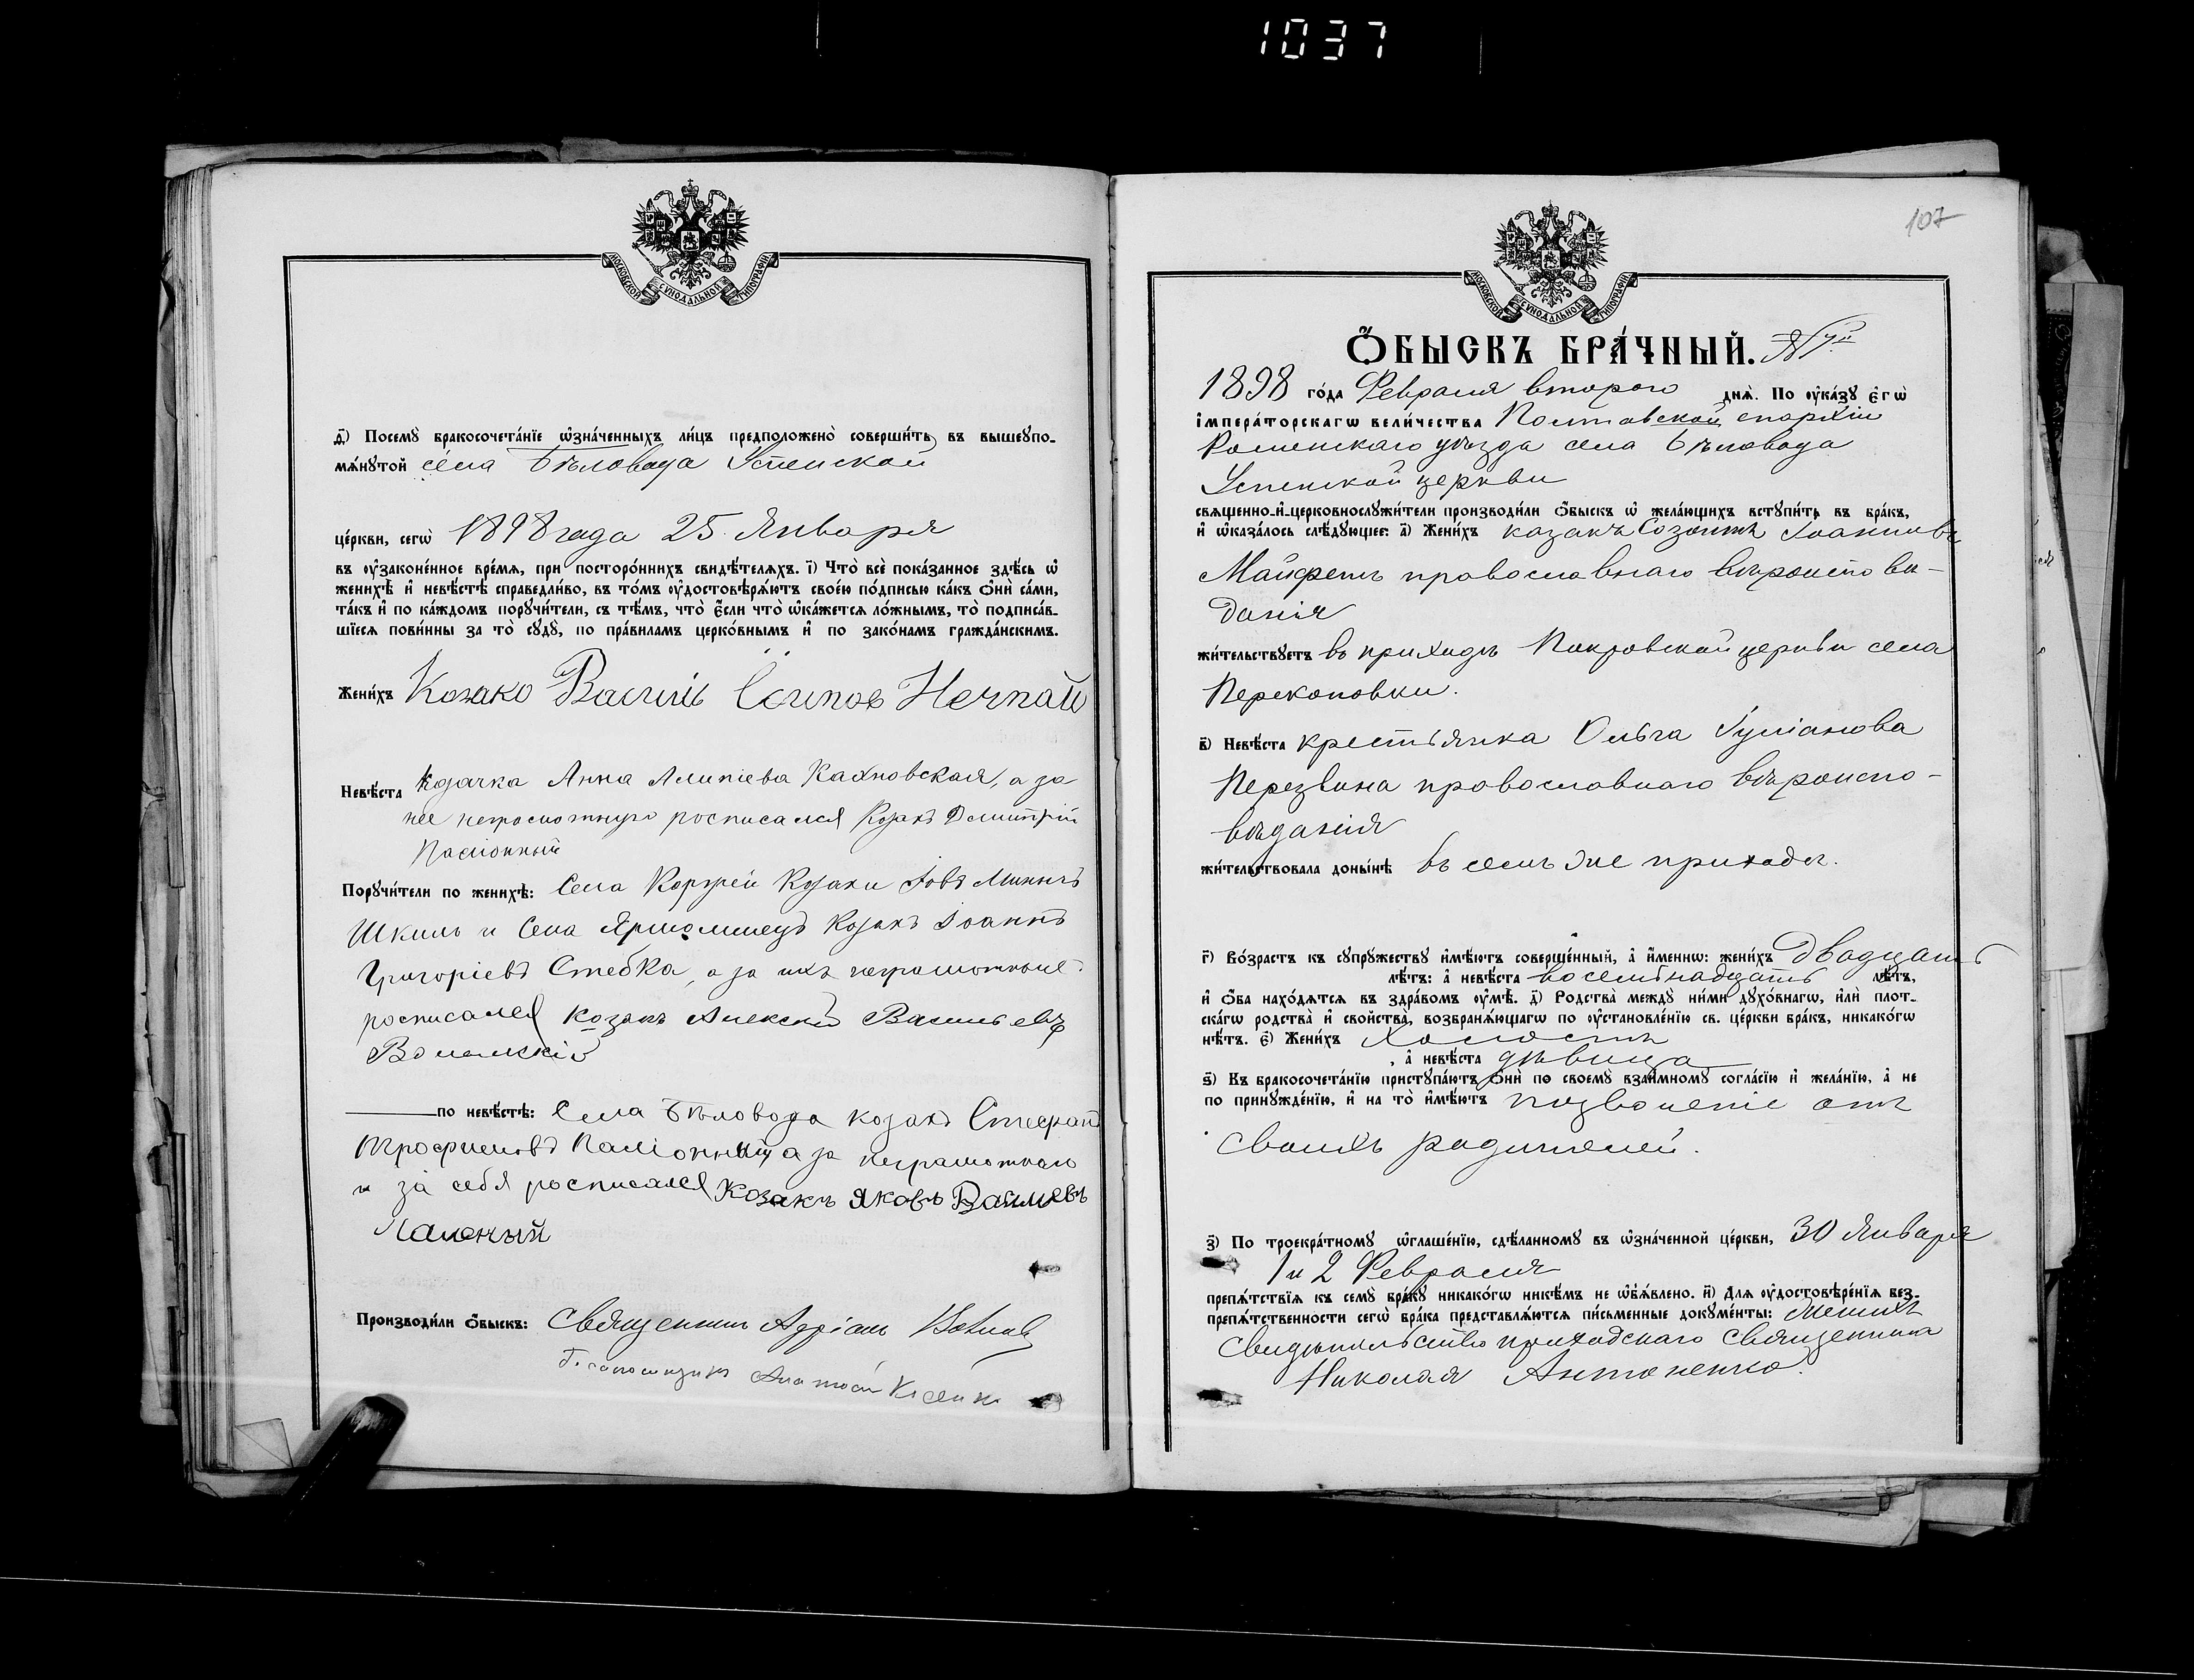 1037
МОСКОВСКОЙ СУНОДАЛЬНОЙ ТИПОГРАФІИ
д҃) Посемꙋ бракосочета́нїе ѡ҆зна́ченныхъ ли́цъ предположено̀ соверши́ть въ вышеупо-
мѧ́нутой села Бѣловода Успенской
це́ркви, сегѡ̀ 1898 года 25 Января
въ ᲂу҆зако́ненное вре́мѧ, при посторо́ннихъ свидѣ́телѧхъ. і҃) Что̀ всѐ пока́занное здѣ́сь ѡ҆
женихѣ̀ и҆ невѣ́стѣ справедли́во, въ то́мъ ᲂу҆достовѣрѧ́ютъ свое́ю по́дписью ка́къ ѻ҆нѝ са́ми,
та́къ и҆ по ка́ждомъ порꙋчи́тели, съ тѣ́мъ, что̀ є҆́сли что̀ ѡ҆ка́жетсѧ ло́жнымъ, то̀ подписа́в-
шїесѧ пови́нны за то̀ сꙋдꙋ̀, по пра́виламъ церко́внымъ и҆ по зако́намъ гражда́нскимъ.
Жени́хъ Козако Василь Осипов Нечпай
Невѣ́ста Козачка Анна Алипіева Кахновская, а за
нее неграмотную росписался Козакъ Дмитрій
Палionный
Порꙋчи́тели по женихѣ̀: Села Коржей Козаки Іовъ Мининъ
Шкиль и Села Ярмолинецъ Козакъ Іоаннъ
Григоріевъ Стебка, а за ихъ неграмотныхъ
росписался козакъ Алексѣй Васильевъ
по невѣ́стѣ: Села Бѣловода козакъ Стефанъ
Трофимовъ а за неграмотнаго
и за себя росписался Козакъ Яковъ Васильевъ
Производи́ли ѻ҆́быскъ: Священникъ Адріанъ
Псаломщикъ
107
МОСКОВСКОЙ СУНОДАЛЬНОЙ ТИПОГРАФІИ
Ѻ҆́БЫСКЪ БРА́ЧНЫЙ. № 7й
1898 го́да Февраля второго днѧ̀. По ᲂу҆ка́зꙋ є҆гѡ̀
і҆мпера́торскагѡ вели́чества Полтавской епархіи
Роменскаго уѣзда села Бѣловода
Успенской церкви
свѧще́нно-и҆-церковнослꙋжи́тели производи́ли ѻ҆́быскъ ѡ҆ жела́ющихъ встꙋпи́ть въ бра́къ,
и҆ ѡ҆каза́лось слѣ́дꙋющее: а҃) Жени́хъ козакъ Созонтъ Іоанновъ
Майфетъ православнаго вѣроисповѣ-
данія
жи́тельствꙋетъ въ приходѣ Покровской церкви села
Перекоповки.
в҃) Невѣ́ста крестьянка Ольга Іуліанова
Перезвина православнаго вѣроиспо-
вѣданія
жи́тельствовала доны́нѣ въ семъ же приходѣ.
г҃) Во́зрастъ къ сꙋпрꙋ́жествꙋ и҆мѣ́ютъ соверше́нный, а҆ и҆́менно: жени́хъ двадцать
лѣ́тъ: а҆ невѣ́ста восемнадцать лѣ́тъ,
и҆ ѻ҆́ба нахо́дѧтсѧ въ здра́вомъ ᲂу҆мѣ̀. д҃) Родства̀ междꙋ̀ ни́ми дꙋхо́внагѡ, и҆лѝ плот-
ска́гѡ родства̀ и҆ сво́йства, возбранѧ́ющагѡ по ᲂу҆становле́нїю св. це́ркви бра́къ, никако́гѡ
нѣ́тъ. є҃) Жени́хъ холостъ
, а҆ невѣ́ста дѣвица
ѕ҃) Къ бракосочета́нїю пристꙋпа́ютъ ѻ҆нѝ по своемꙋ̀ взаи́мномꙋ согла́сїю и҆ жела́нїю, а҆ не
по принꙋжде́нїю, и҆ на то̀ и҆мѣ́ютъ позволеніе отъ
своихъ родителей.
з҃) По троекра́тномꙋ ѡ҆глаше́нїю, сдѣ́ланномꙋ въ ѡ҆зна́ченной це́ркви, 30 Января
1 и 2 Февраля
препѧ́тствїѧ къ семꙋ̀ бра́кꙋ никако́гѡ никѣ́мъ не ѡ҆б̾ѧ́влено. и҃) Длѧ ᲂу҆достовѣре́нїѧ без-
препѧ́тственности сегѡ̀ бра́ка представлѧ́ютсѧ пи́сьменные докꙋме́нты: жениха
свидѣтельство приходскаго священника
Николая Антоненко.